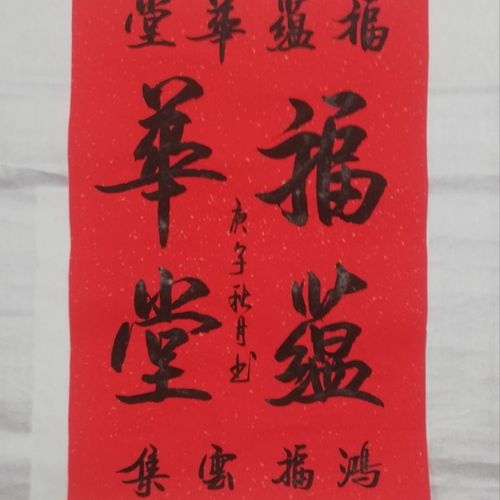 福蘊華堂
福蘊
華堂
庚子秋月书
鴻福雲集